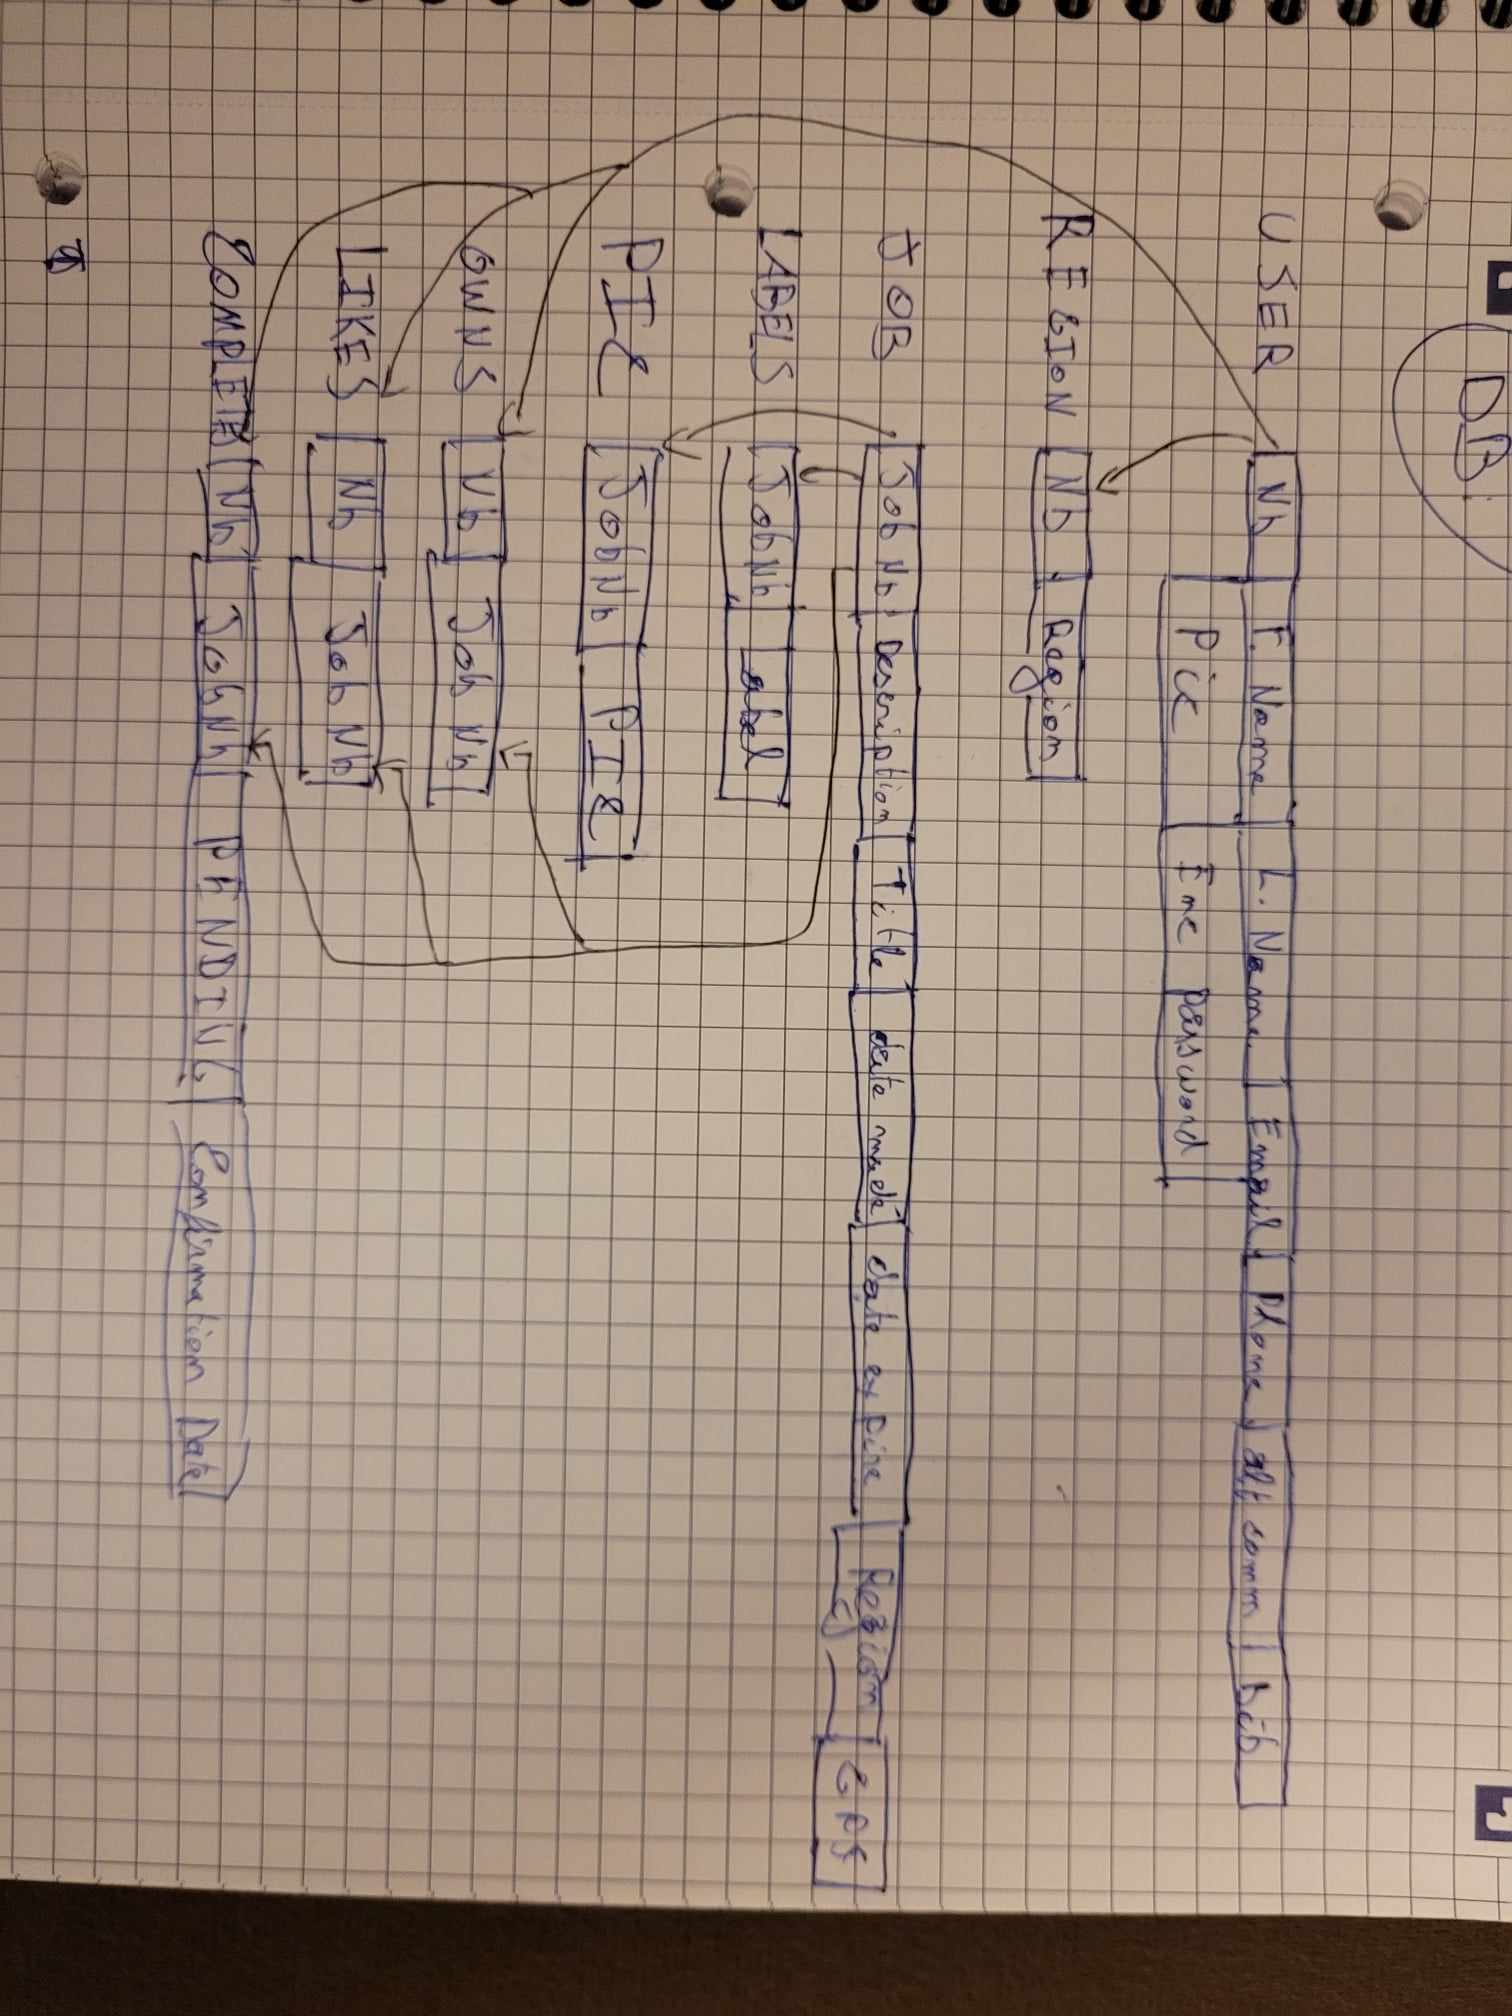 DB:
USER Nb F. Name L. Name Email Phone alt comm
Pic Enc password
REGION Nb Region
JOB Job Nb Description Title date made date expire Region GPS
LABELS Job Nb Label
PIC Job Nb PIC
OWNS Nb Job Nb
LIKES Nb Job Nb
COMPLETES Nb Job Nb PENDING Confirmation Date